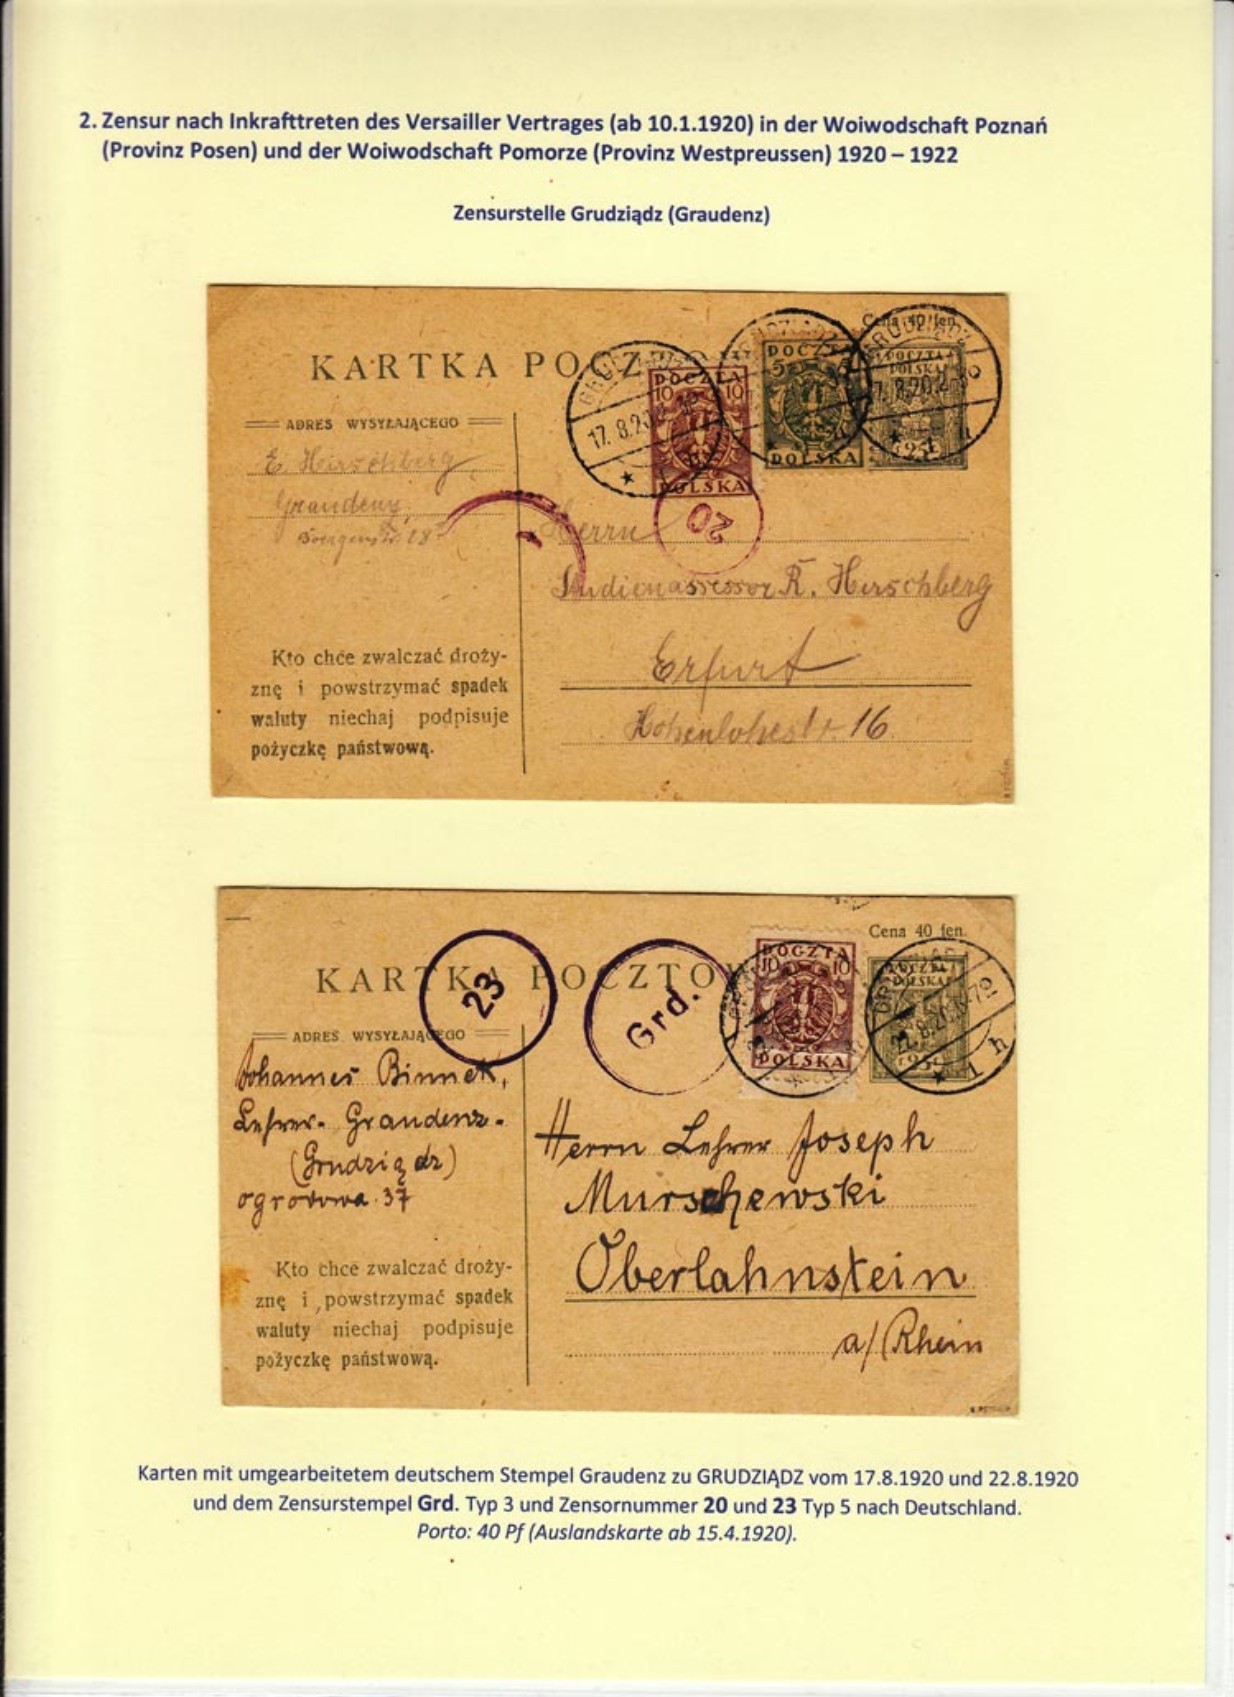 2. Zensur nach Inkrafttreten des Versailler Vertrages (ab 10.1.1920) in der Woiwodschaft Poznań
(Provinz Posen) und der Woiwodschaft Pomorze (Provinz Westpreussen) 1920 – 1922
Zensurstelle Grudziądz (Graudenz)
Cena 40 fen.
KARTKA POCZTO
POCZTA
10 10
POLSKA
POCZTA
5 5
POLSKA
POCZTA
POLSKA
25
17. 8. 20
ADRES WYSYŁAJĄCEGO
E. Hirschberg
Graudenz
20
Herrn
Studienassessor R. Hirschberg
Erfurt
Hohenlohestr. 16
Kto chce zwalczać droży-
znę i powstrzymać spadek
waluty niechaj podpisuje
pożyczkę państwową.
Cena 40 fen.
KARTKA POCZTOW
23
Grd.
POCZTA
10 10
POLSKA
POCZTA
POLSKA
25
22. 8. 20
1 h
ADRES WYSYŁAJĄCEGO
Johannes Binnek,
Lehrer- Graudenz-
(Grudziądz)
ogrodowa 37
Herrn Lehrer Joseph
Murschewski
Oberlahnstein
a/Rhein
Kto chce zwalczać droży-
znę i powstrzymać spadek
waluty niechaj podpisuje
pożyczkę państwową.
Karten mit umgearbeitetem deutschem Stempel Graudenz zu GRUDZIĄDZ vom 17.8.1920 und 22.8.1920
und dem Zensurstempel Grd. Typ 3 und Zensornummer 20 und 23 Typ 5 nach Deutschland.
Porto: 40 Pf (Auslandskarte ab 15.4.1920).